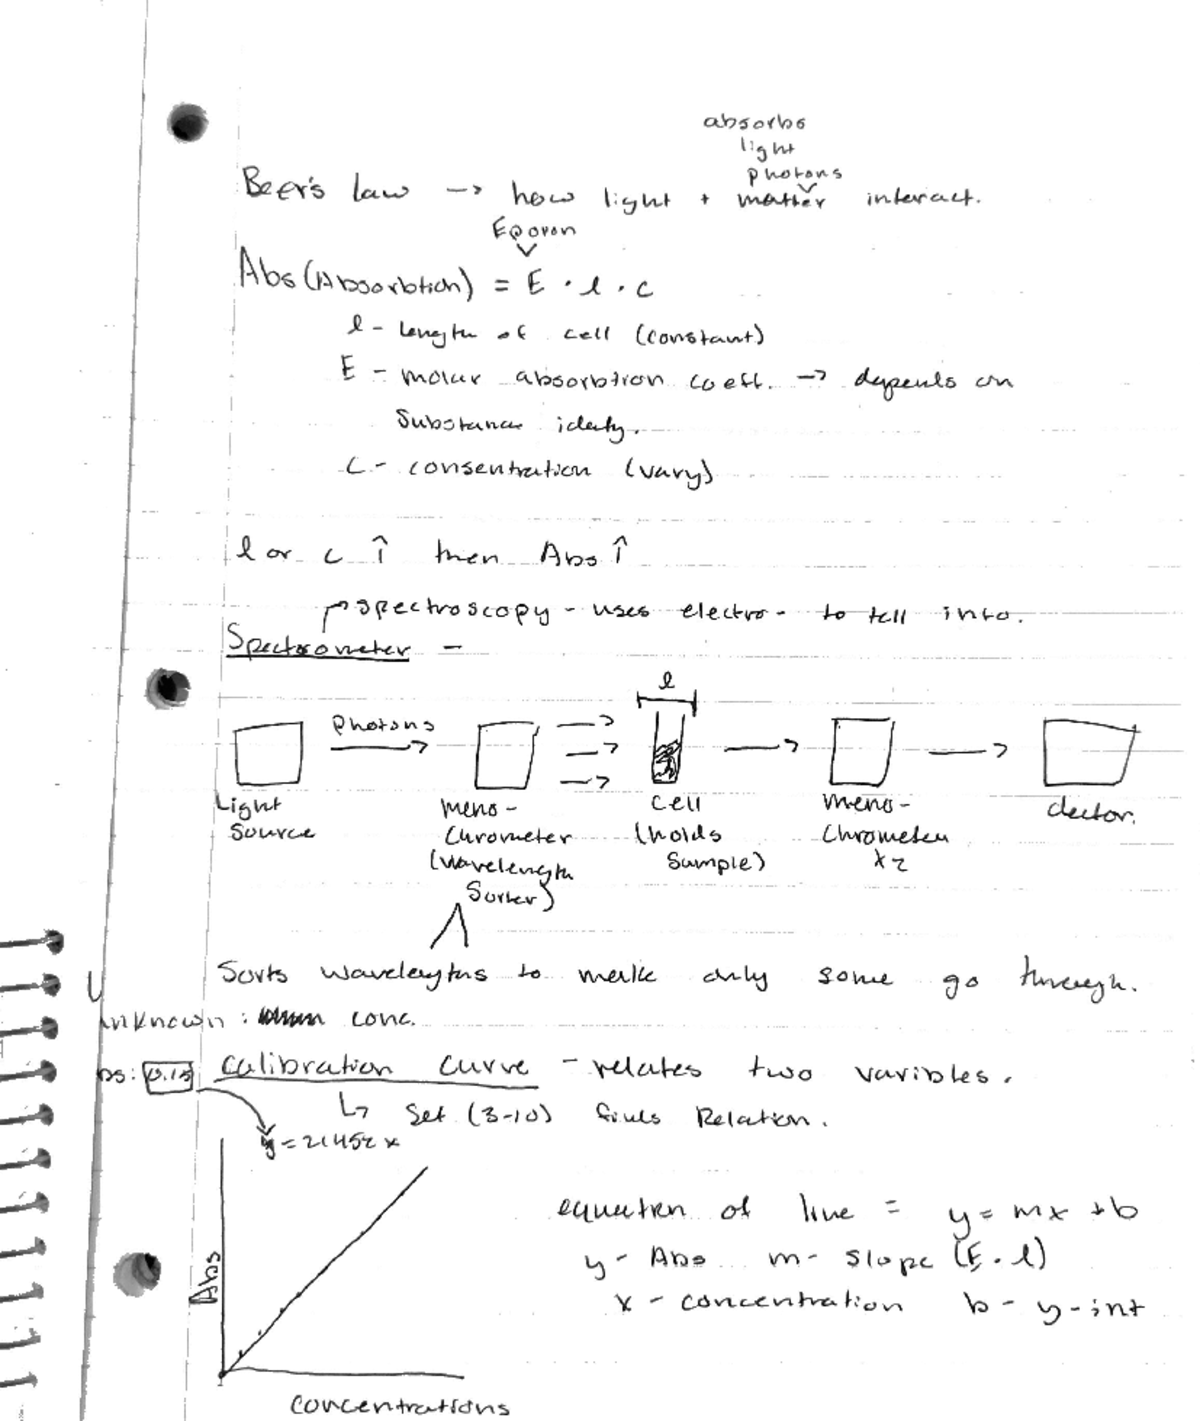 absorbs
light
photons
Beer's law → how light + matter interact.
Eporon
Abs (Absorbtion) = E · l · c
l - length of cell (constant)
E - molar absorbtion coeff. → depends on
Substance identy.
C - consentration (vary)
l or c ↑ then Abs ↑
spectroscopy - uses electro- to tell info.
Spectrometer -
l
photons
Light
Source
meno-
Chrometer
(wavelength
Sorter)
Cell
(holds
Sample)
meno-
Chrometer
x 2
dector.
Sorts wavelengths to make only some go through.
Unknown: conc.
bs: 0.15 Calibration Curve - relates two varibles.
↳ Set (3-10) finds Relation.
y = 21452 x
equation of line = y = mx + b
y - Abs m - slope (E · l)
x - concentration b - y-int
Abs
Concentrations